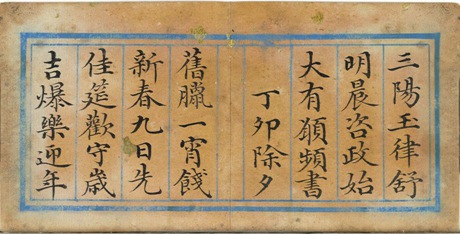 三陽玉律舒
明晨咨政始
大有願頻書
丁卯除夕
舊臘一宵餞
新春九日先
佳筵歡守歲
吉爆樂迎年